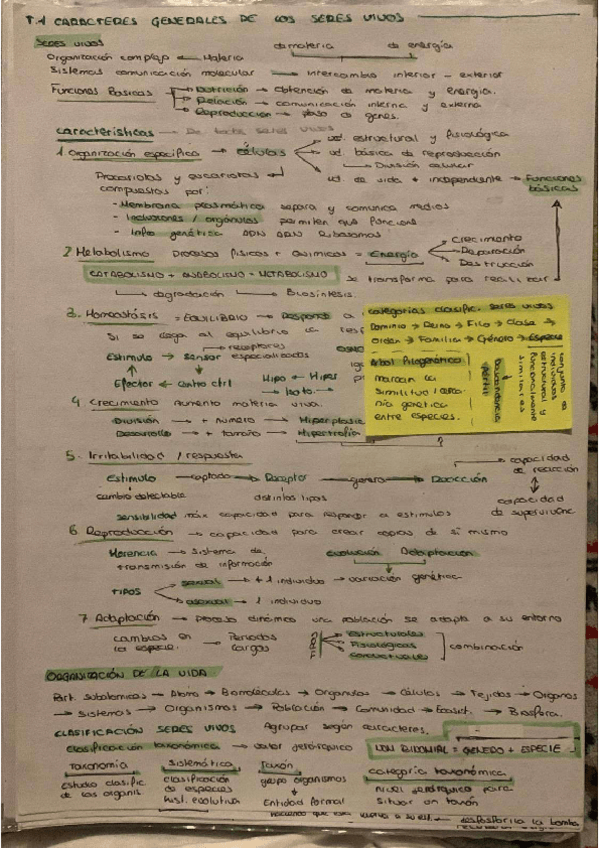 T.1 CARACTERES GENERALES DE LOS SERES VIVOS
SERES VIVOS
de materia de energía
Organización compleja ← Materia
Sistemas comunicación molecular → Intercambio interior - exterior
Funciones Básicas → Nutrición → Obtención de materia y energía.
→ Relación → comunicación interna y externa
→ Reproducción → paso de genes.
Características → De todo seres vivos
→ ud. estructural y fisiológica
1 Organización específica → células → ud. básica de reproducción
→ División celular
Procariotas y eucariotas → ud. de vida + independiente → Funciones básicas
compuestos por:
- Membrana plasmática separa y comunica medios
- Inclusiones / orgánulos permiten que funcione
- Info genética ADN ARN Ribosomas
2 Metabolismo Procesos físicos + Químicos = Energía
Crecimiento
Reparación
Destrucción
CATABOLISMO + ANABOLISMO = METABOLISMO se transforma para realizar
→ degradación → Biosíntesis.
3. Homeostásis = EQUILIBRIO → Responde a
Si se llega al equilibrio
receptores
Estímulo → sensor especializados
Efector ← centro ctrl
Hipo ← Hiper
→ Isoto.
categorías clasific. seres vivos
Dominio → Reino → Filo → Clase →
Orden → Familia → Género → Especie
Árbol Filogenético
marcan la
similitud / cerca
nía genética
entre especies.
conjunto de
individuos
estructural y
funcionalmente
similares
Descendencia
fértil
4 Crecimiento Aumento materia viva.
División → + número → Hiperplasia
Desarrollo → + tamaño → Hipertrofia
5. Irritabilidad / respuesta
→ capacidad de reacción
Estímulo → captado → Receptor → genera → Reacción
cambio detectable distintos tipos
capacidad de supervivenc.
sensibilidad capacidad para responder a estímulos
6. Reproducción → capacidad para crear copias de si mismo
Herencia → Sistema de transmisión de información
evolución Adaptación
TIPOS → sexual → + 1 individuo → variación genética
→ asexual → 1 individuo
7. Adaptación → Proceso dinámico una población se adapta a su entorno
cambios en la especie. → Periodos largos
Estructurales
Fisiológicas
Conductuales
combinación
ORGANIZACIÓN DE LA VIDA
Part. Subatomicas → Átomo → Biomoléculas → Organulos → Células → Tejidos → Organos
→ Sistemas → Organismos → Población → Comunidad → Ecosist. → Biosfera.
CLASIFICACIÓN SERES VIVOS Agrupar según caracteres.
Clasificación taxonómica → valor jerárquico
NOM BINOMIAL = GENERO + ESPECIE
Taxonomía Sistemática Taxón categoría taxonómica
Estudio clasific de los organis.
clasificación de especies hist. evolutiva
grupo organismos
Entidad formal
nivel jerárquico para situar un taxón
desfosforila la bomba